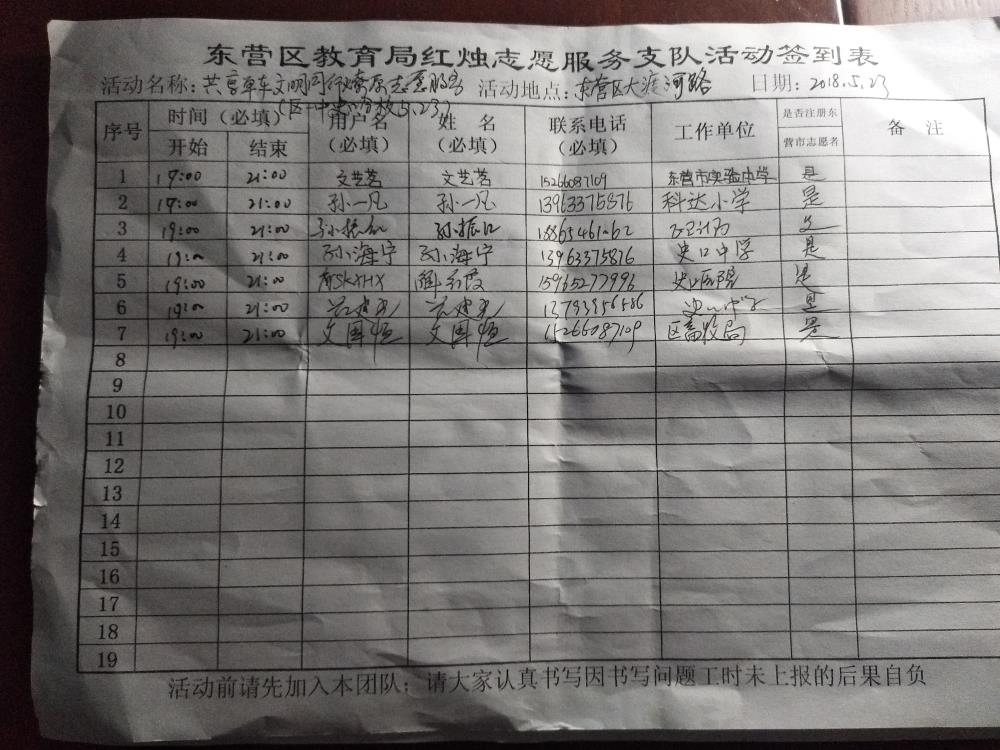 东营区教育局红烛志愿服务支队活动签到表
活动名称：共享单车文明同行燎原志愿服务 活动地点：东营区大渡河路 日期：2018.5.23
（区中心学校5.23）
序号 时间（必填） 用户名（必填） 姓 名（必填） 联系电话（必填） 工作单位 是否注册东营市志愿者 备 注
开始 结束
1 19:00 21:00 文艺茗 文艺茗 15266087109 东营市实验中学 是
2 19:00 21:00 孙一凡 孙一凡 13963375876 科达小学 是
3 19:00 21:00 孙振 18865461262
4 19:00 21:00 孙海宁 孙海宁 13963375876 史口中学 是
5 19:00 21:00 15965277996 是
6 19:00 21:00 是
7 19:00 21:00 文国恒 文国恒 15266087109 区畜牧局 是
8
9
10
11
12
13
14
15
16
17
18
19
活动前请先加入本团队；请大家认真书写因书写问题工时未上报的后果自负